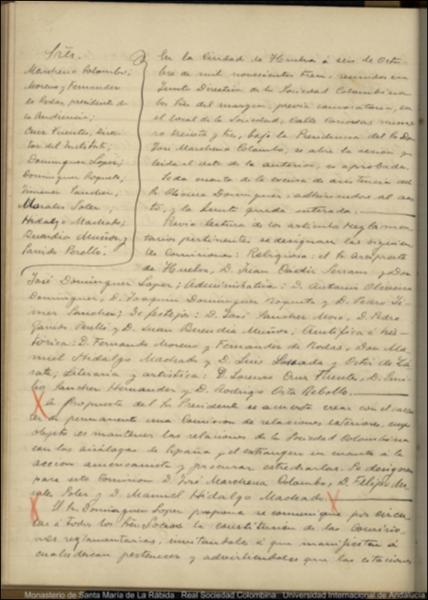 Sres.
Marchena Colombo;
Moreno y Fernandez
de Rodas, presidente de
la Audiencia;
Cruz Fuentes, Direc
tor del Instituto;
Dominguez Lopez;
Dominguez Roqueta,
Jimenez Sanchez;
Morales Soler;
Hidalgo Machado;
Buendia Muñoz y
Garrido Perelló.
En la Ciudad de Huelva á seis de Octu
bre de mil novecientos trece, reunidos en
Junta Directiva de la Sociedad Colombina
los Sres del margen, previa convocatoria, en
el local de la Sociedad, Calle Canovas núme
ro treinta y tres, bajo la Presidencia del Sr Dn
José Marchena Colombo, se abre la sesion y
leida el acta de la anterior, es aprobada.
Se da cuenta de la excusa de asistencia del
Sr Oliveira Dominguez, adhiriendose al ac
to, y la Junta queda enterada.
Previa lectura de los articulos reglamen
tarios pertinentes, se designan las siguien
tes Comisiones: Religiosa: el Sr Arcipreste
de Huelva, D. Juan Cádiz Serrano y Don
José Dominguez Lopez; Administrativa: D. Antonio Oliveira
Dominguez, D. Joaquin Dominguez Roqueta y D. Pedro Ji
menez Sanchez; Festejos: D. José Sanchez Mora, D. Pedro
Garrido Perelló y D. Juan Buendia Muñoz; Cientifica é his
tórica: D. Fernando Moreno y Fernandez de Rodas, Don Ma
nuel Hidalgo Machado y D. Luis
Literaria y artistica: D. Lorenzo Cruz Fuentes, D. Emi
lio Sanchez Hernandez y D. Rodrigo Orta Rebollo.
X A propuesta del Sr Presidente se acuerda crear con el carac
ter de permanente una Comision de relaciones exteriores, cuyo
objeto es mantener las relaciones de la Sociedad Colombina
con las análogas de España y el extranjero en cuanto á la
accion americanista y procurar estrecharlas. Se designan
para esta Comision D. José Marchena Colombo, D. Felipe Mo
rales Soler y D. Manuel Hidalgo Machado. X
X El Sr Dominguez Lopez propone se comunique por circu
lar á todos los Sres Socios la constitucion de las Comisio
nes reglamentarias, invitandoles á que manifiesten á
cual desean pertenecer y advirtiendoles que las citaciones
Monasterio de Santa María de La Rábida Real Sociedad Colombina Universidad Internacional de Andalucía